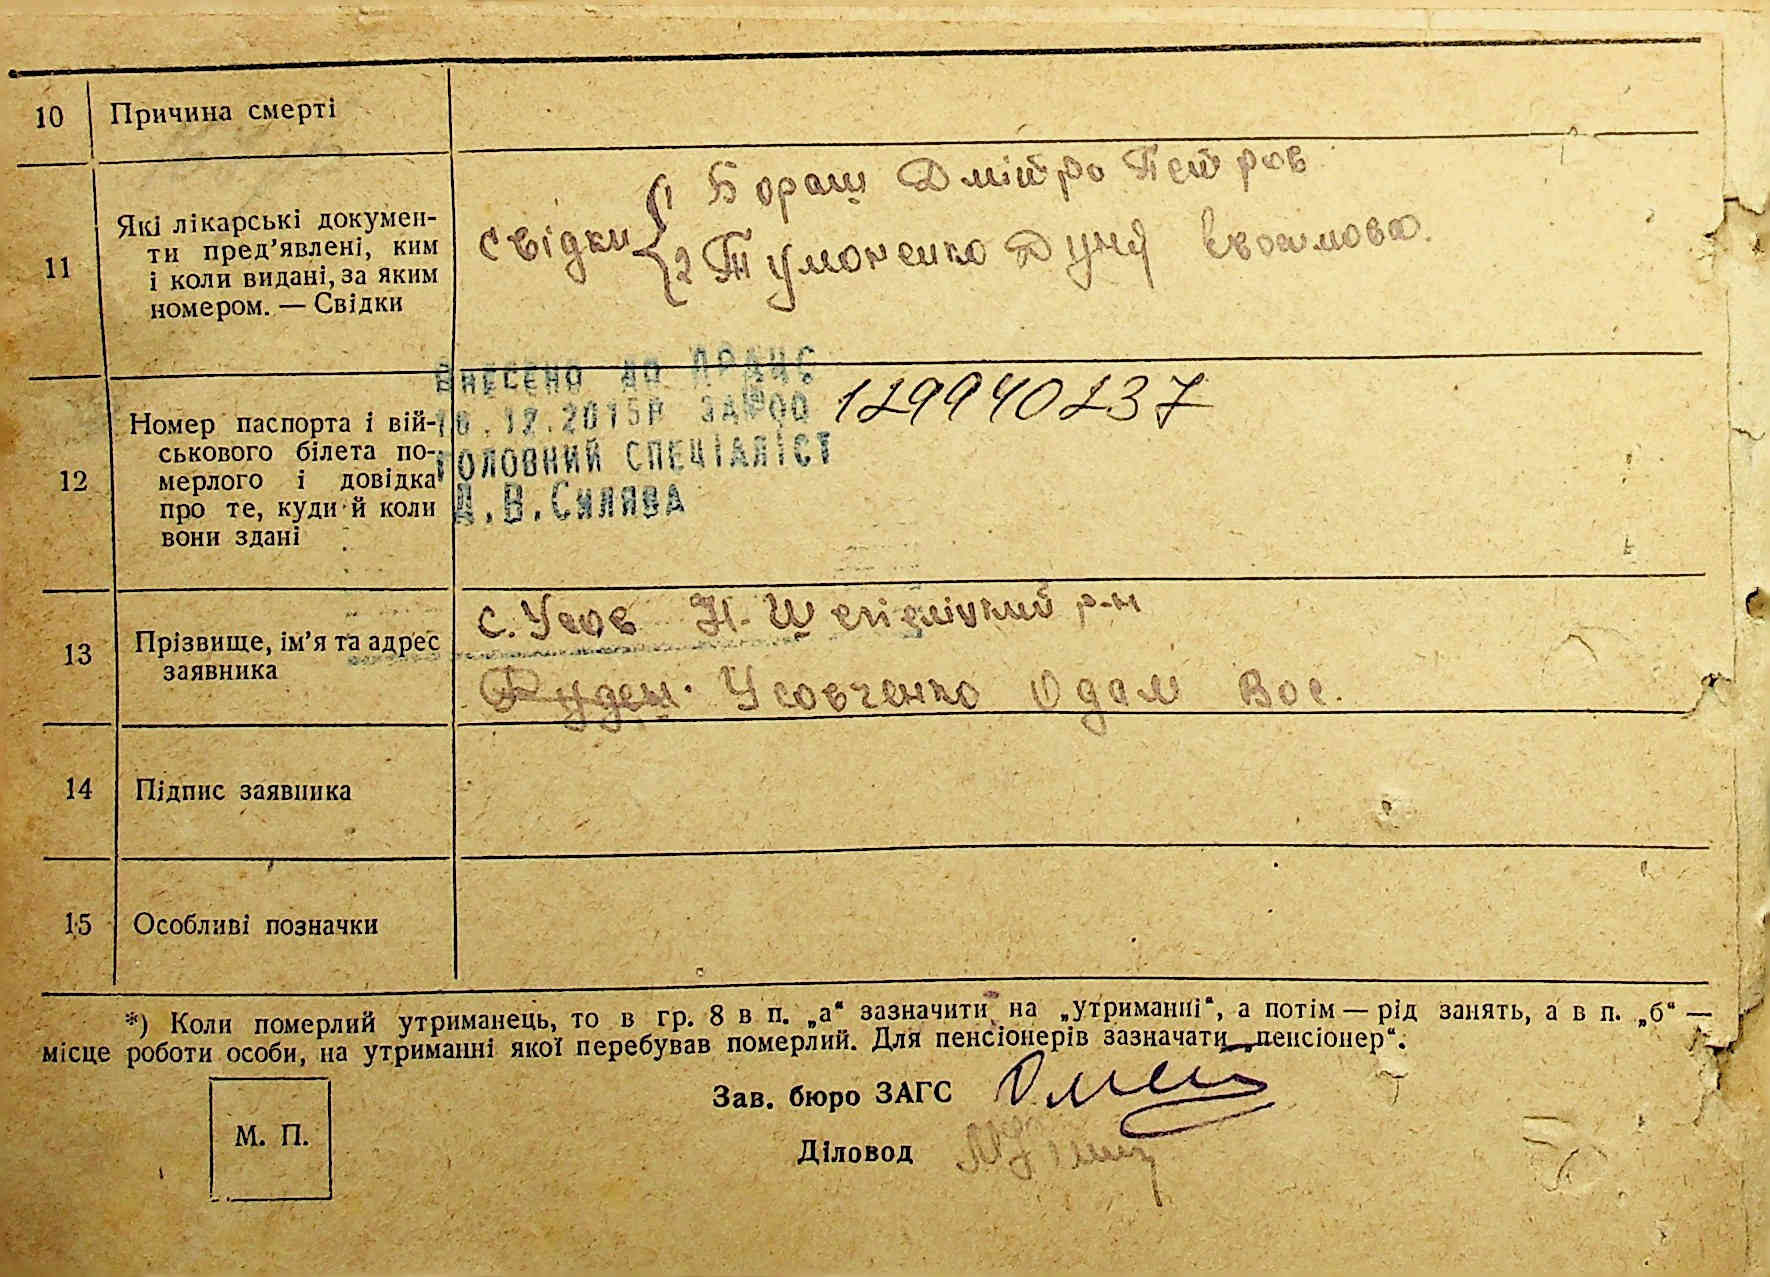 10 Причина смерті
11 Які лікарські докумен-
ти пред’явлені, ким
і коли видані, за яким
номером. — Свідки
свідки { 1 Бораш Дмітро Петров
2 Тимоненко Дуня
12 Номер паспорта і вій-
ськового білета по-
мерлого і довідка
про те, куди й коли
вони здані
ВНЕСЕНО ДО ДРАЦС
12.2015Р ЗА №00 129940237
ГОЛОВНИЙ СПЕЦІАЛІСТ
Д.В.СИЛЯВА
13 Прізвище, ім’я та адрес
заявника
с. Усов Н. р-н
Усовченко Одам Вас.
14 Підпис заявника
15 Особливі позначки
*) Коли померлий утриманець, то в гр. 8 в п. „а“ зазначити на „утриманні“, а потім — рід занять, а в п. „б“ —
місце роботи особи, на утриманні якої перебував померлий. Для пенсіонерів зазначати „пенсіонер“.
Зав. бюро ЗАГС
М. П.
Діловод